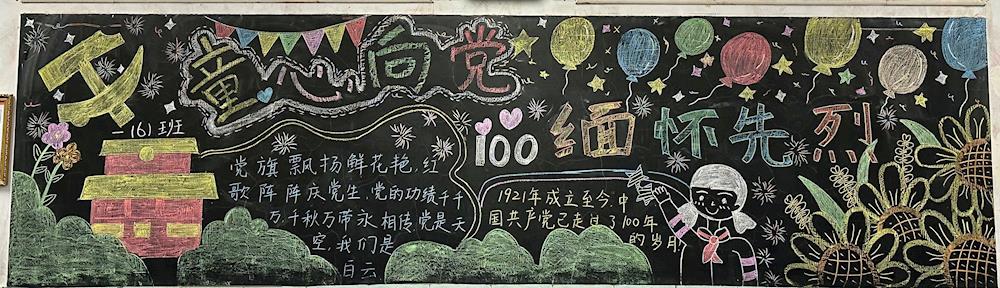 童心向党
一(6)班
党旗飘扬鲜花艳,红
歌阵阵庆党生,党的功绩千千
万,千秋万带永相传,党是天
空,我们是
白云
100
缅怀先烈
1921年成立至今,中
国共产党已走过了100年
的岁月